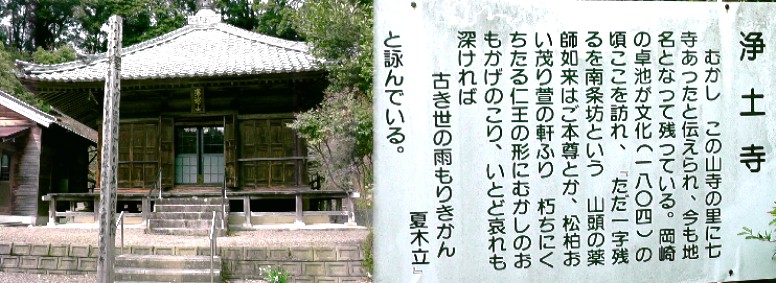 浄土寺
むかし　この山寺の里に七
寺あったと伝えられ、今も地
名となって残っている。岡崎
の卓池が文化(一八〇四)の
頃ここを訪れ、『ただ一字残
るを南条坊という　山頭の薬
師如来はご本尊とか、松柏お
い茂り萱の軒ふり　朽ちにく
ちたる仁王の形にむかしのお
もかげのこり、いとど哀れも
深ければ
古き世の雨もりきかん
夏木立』
と詠んでいる。